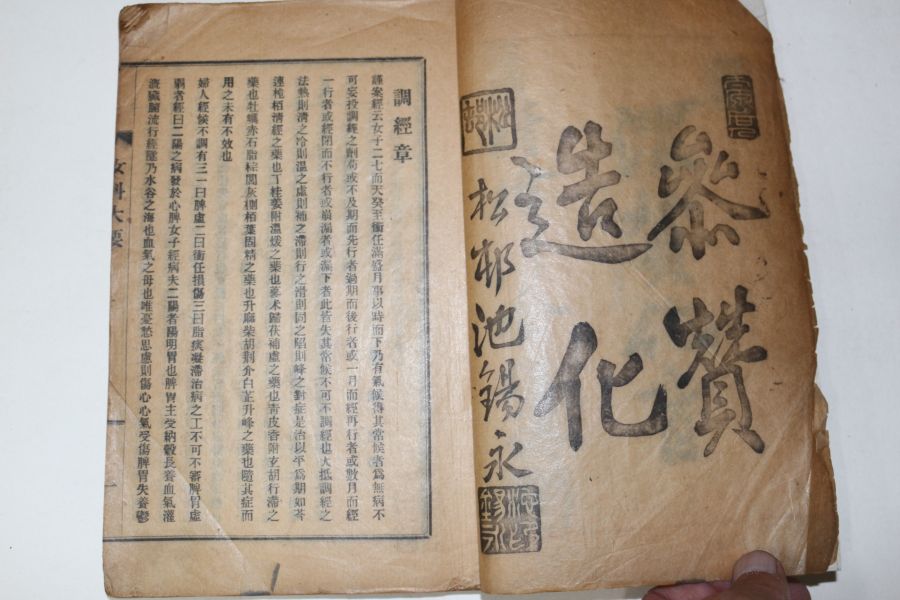 參贊
造化
松邨池錫永
調經章
謹案經云女子二七而天癸至衝任滿盛月事以時而下乃有氣候得其常候者爲無病不
可妄投調經之劑苟或不及期而先行者過期而後行者或一月而經再行者或數月而經
一行者或經閉而不行者或崩漏者或漏下者此皆失其常候不可不調經也大抵調經之
法熱則淸之冷則溫之虛則補之滯則行之滑則固之陷則峰之對症是治以平爲期如芩
連梔栢淸經之藥也丁桂姜附溫煖之藥也蔘朮歸茯補虛之藥也靑皮香附玄胡行滯之
藥也牡蠣赤石脂棕閭灰側栢葉固精之藥也升麻柴胡荆介白芷升峰之藥也隨其症而
用之未有不效也
婦人經候不調有三一曰脾虛二曰衝任損傷三曰脂痰凝滯治病之工不可不審脾胃虛
弱者經曰二陽之病發於心脾女子經病夫二陽者陽明胃也脾胃主受納穀長養血氣灌
漑臟腑流行經隧乃水谷之海也血氣之母也唯憂愁思慮則傷心心氣受傷脾胃失養鬱
女科大要